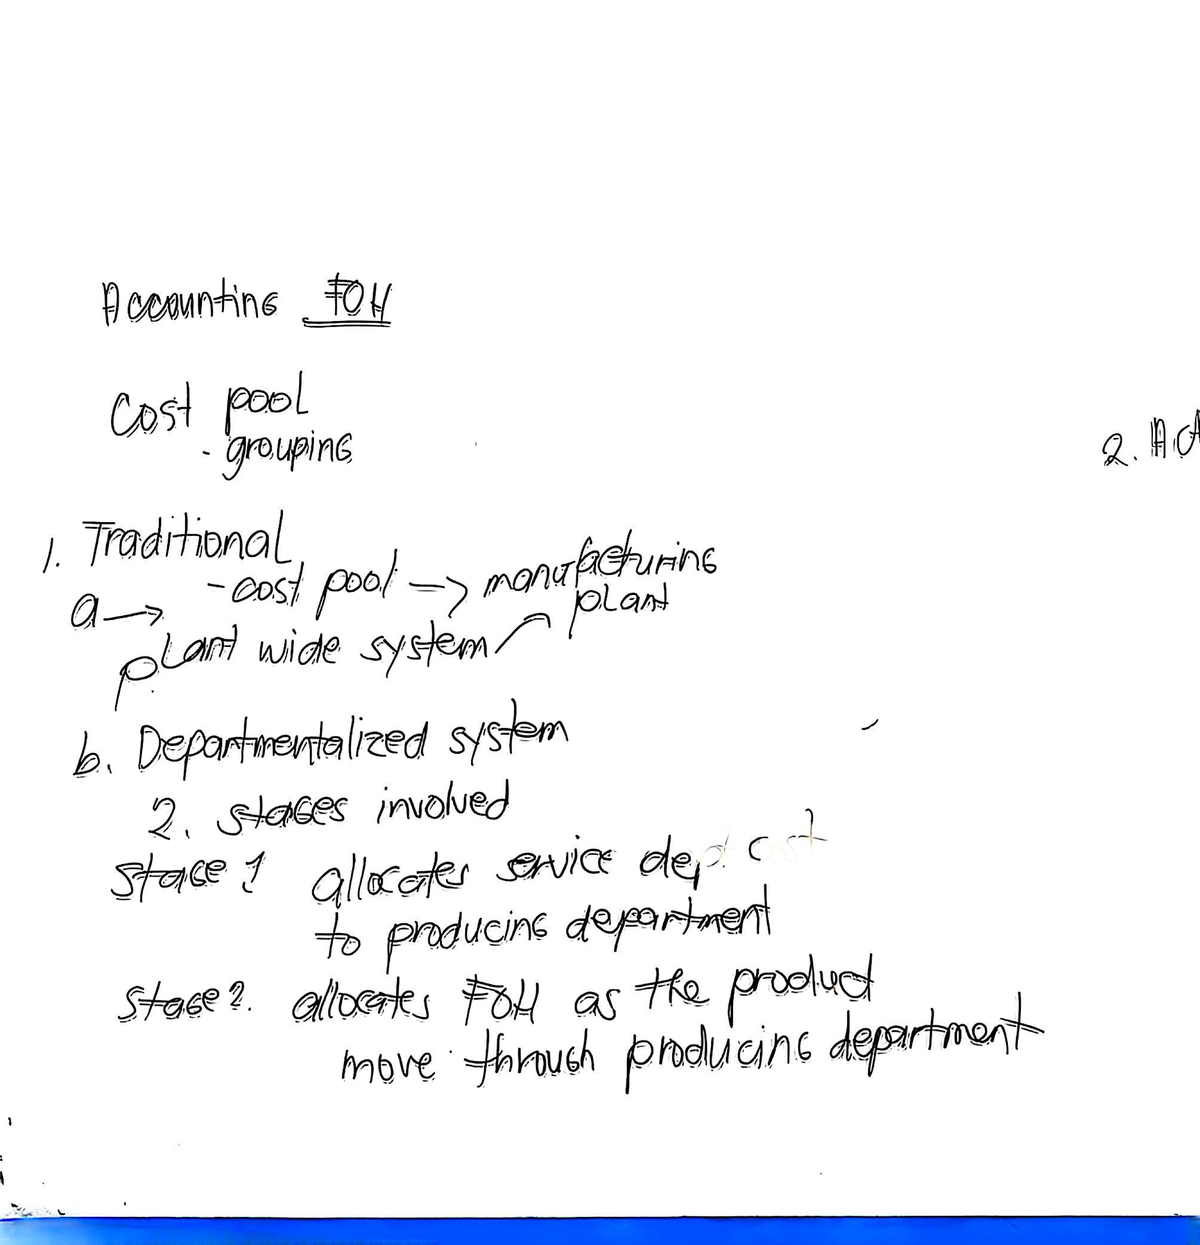 Accounting FOH
Cost pool
- grouping
2. AC
1. Traditional
- cost pool => manufacturing
plant
a →
plant wide system
b. Departmentalized system
2. stages involved
Stage 1 allocates service dept cost
to producing department
Stage 2. allocates FOH as the product
move through producing department